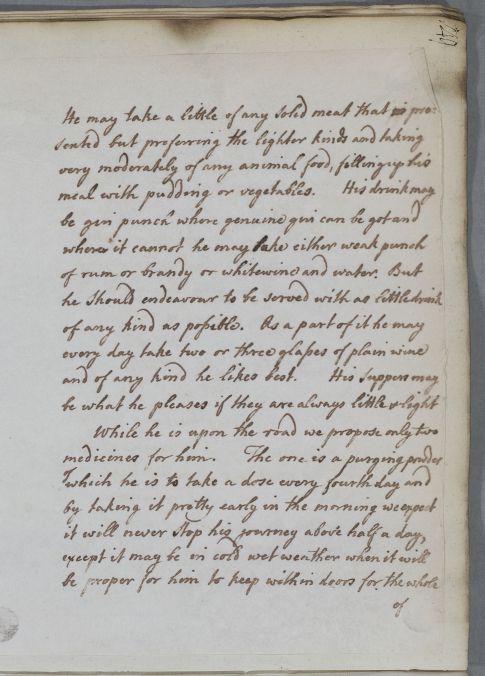 He may take a little of any solid meat that is pre:
sented but preferring the lighter kinds and taking
very moderately of any animal food, filling up his
meal with pudding or vegetables. His drink may
be gin punch where genuine gin can be got and
where it cannot he may take either weak punch
of rum or brandy or whitewine and water. But
he should endeavour to be served with as little drink
of any kind as poſsible. As a part of it he may
every day take two or three glaſses of plain wine
and of any kind he likes best. His suppers may
be what he pleases if they are always little & light
While he is upon the road we propose only two
medicines for him. The one is a purging powder
which he is to take a dose every fourth day and
by taking it pretty early in the morning we expect
it will never stop his journey above half a day,
except it may be in cold wet weather when it will
be proper for him to keep within doors for the whole
of